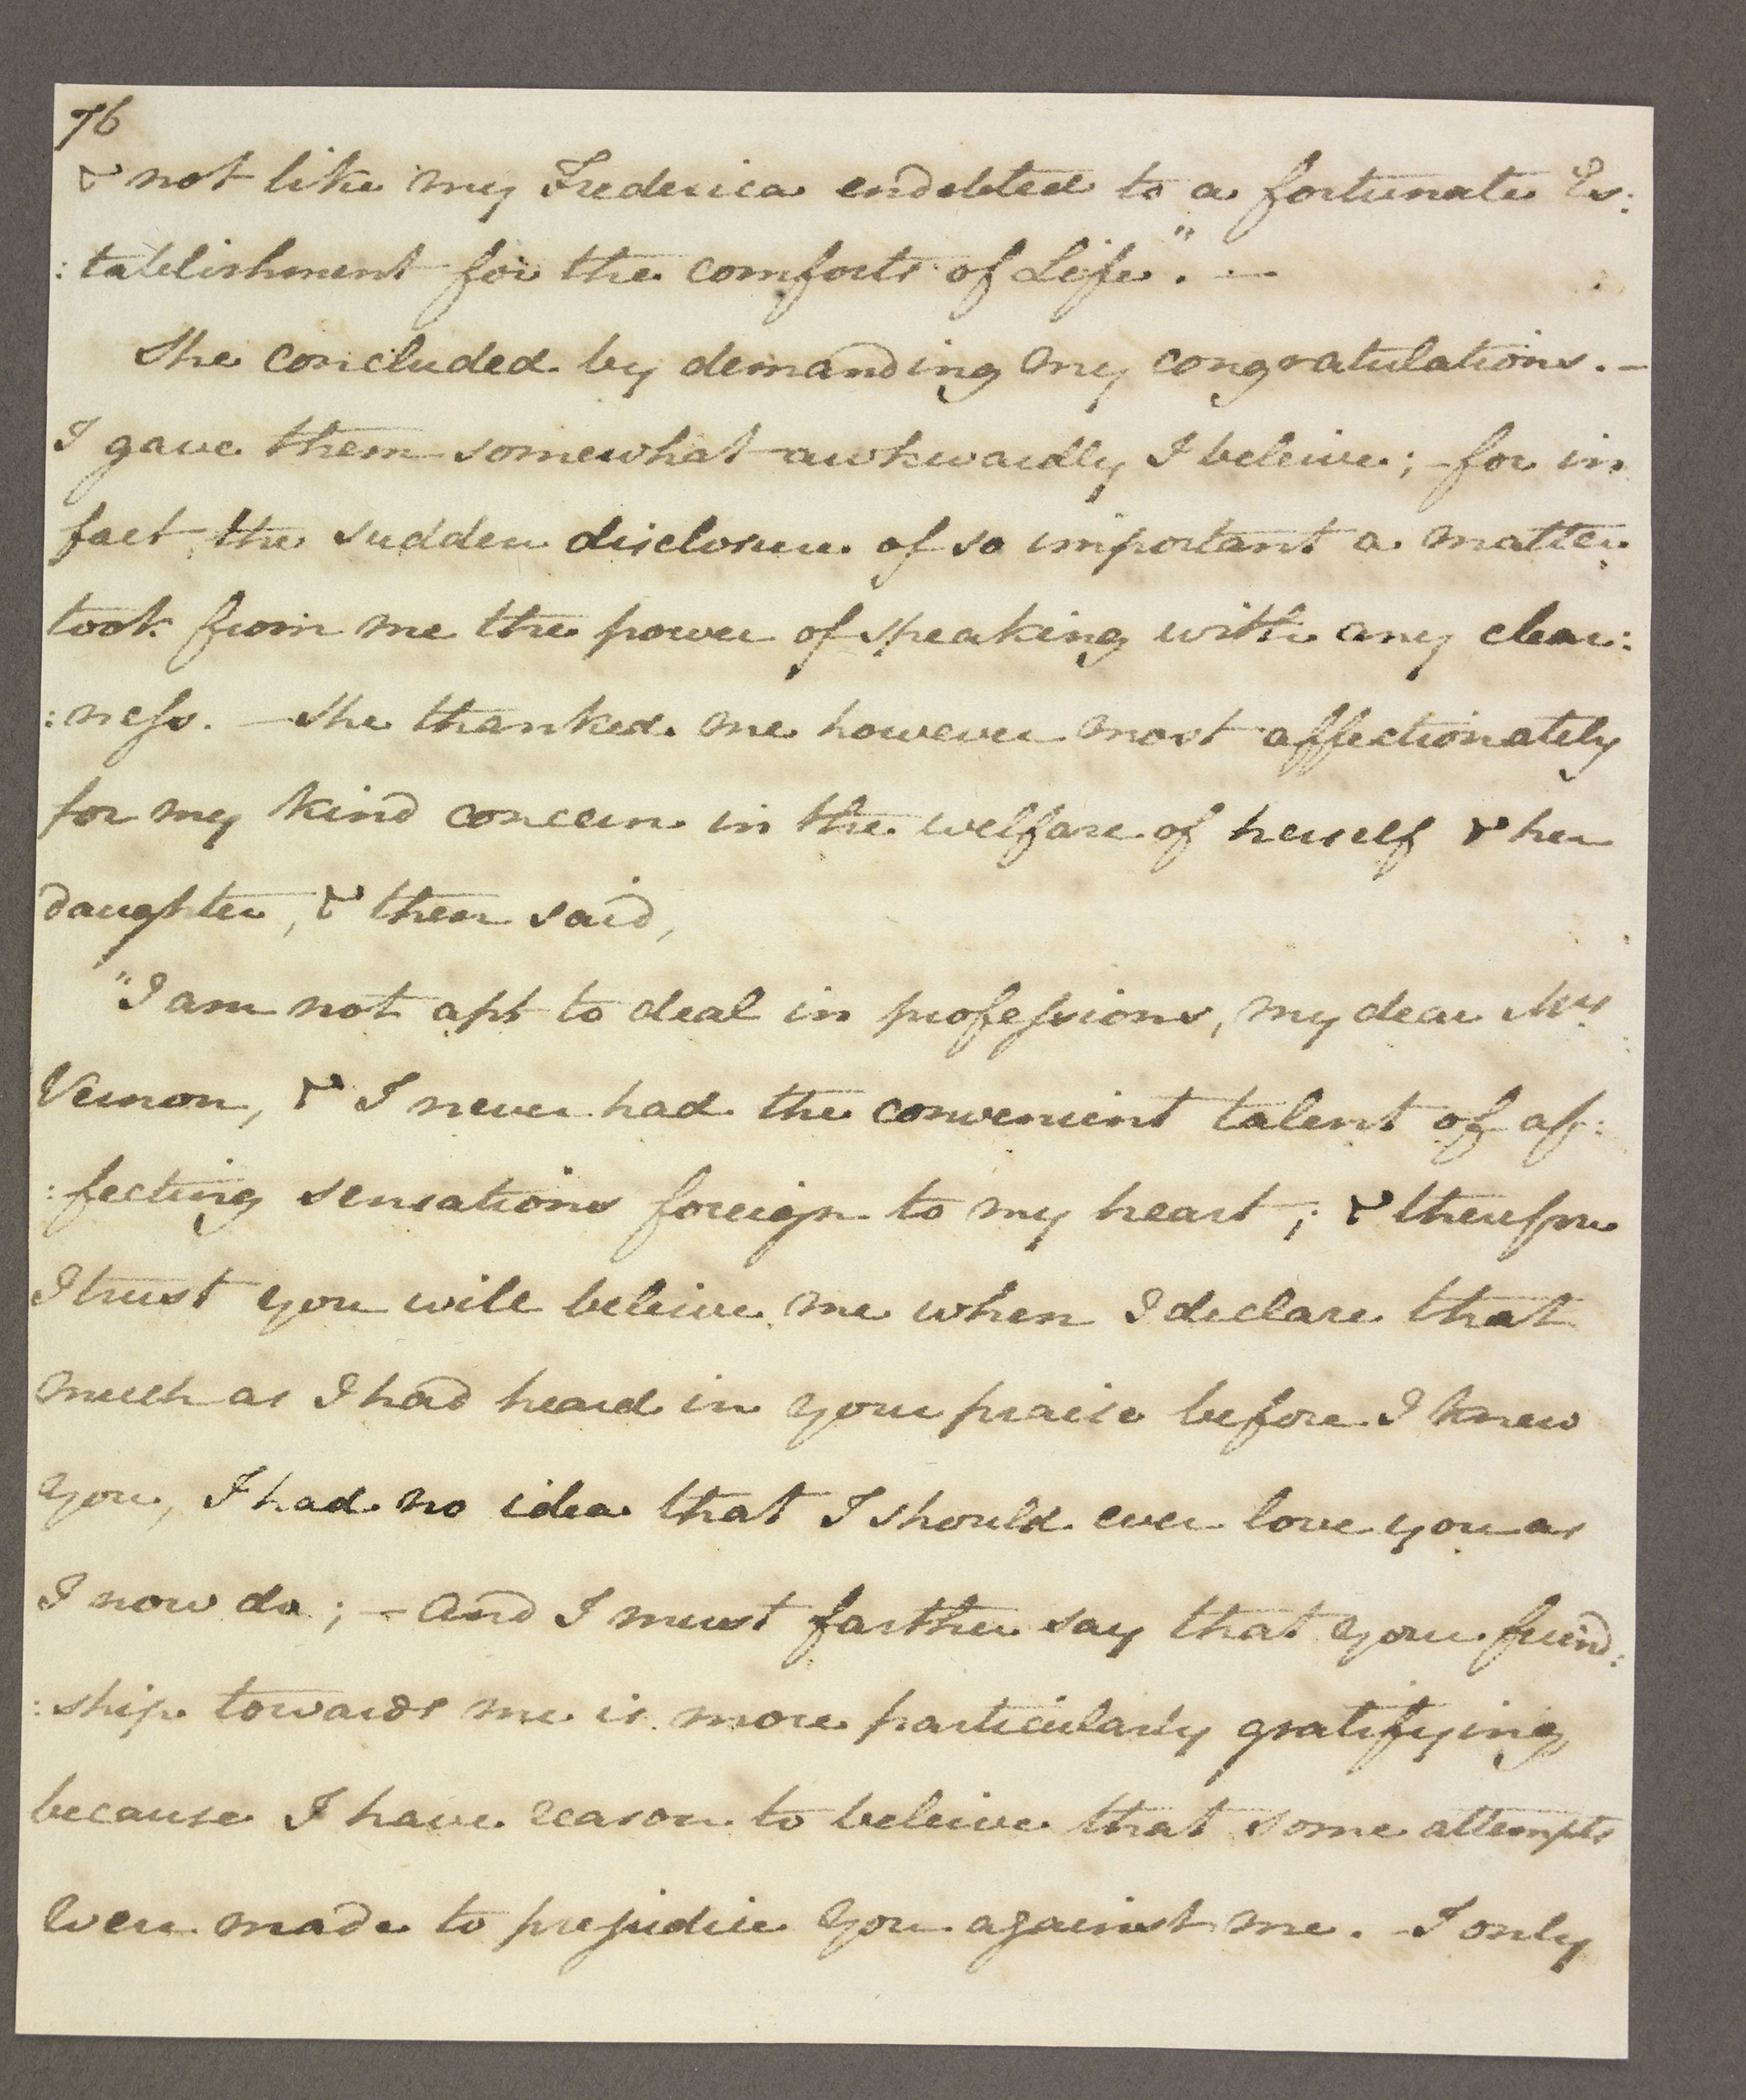 76
& not like my Frederica endebted to a fortunate Es:
:tablishment for the comforts of Life". —
She concluded by demanding my congratulations. —
I gave them somewhat awkwardly I beleive; – for in
fact, the sudden disclosure of so important a matter
took from me the power of speaking with any clear:
:ness. — She thanked me however most affectionately
for my kind concern in the welfare of herself & her
daughter, & then said,
"I am not apt to deal in professions, my dear Mrs
Vernon, & I never had the convenient talent of af:
:fecting sensations foreign to my heart; & therefore
I trust you will beleive me when I declare that
much as I had heard in your praise before I knew
you, I had no idea that I should ever love you as
I now do; – And I must farther say that your freind:
:ship towards me is more particularly gratifying
because I have reason to beleive that some attempts
were made to prejudice you against me. – I only